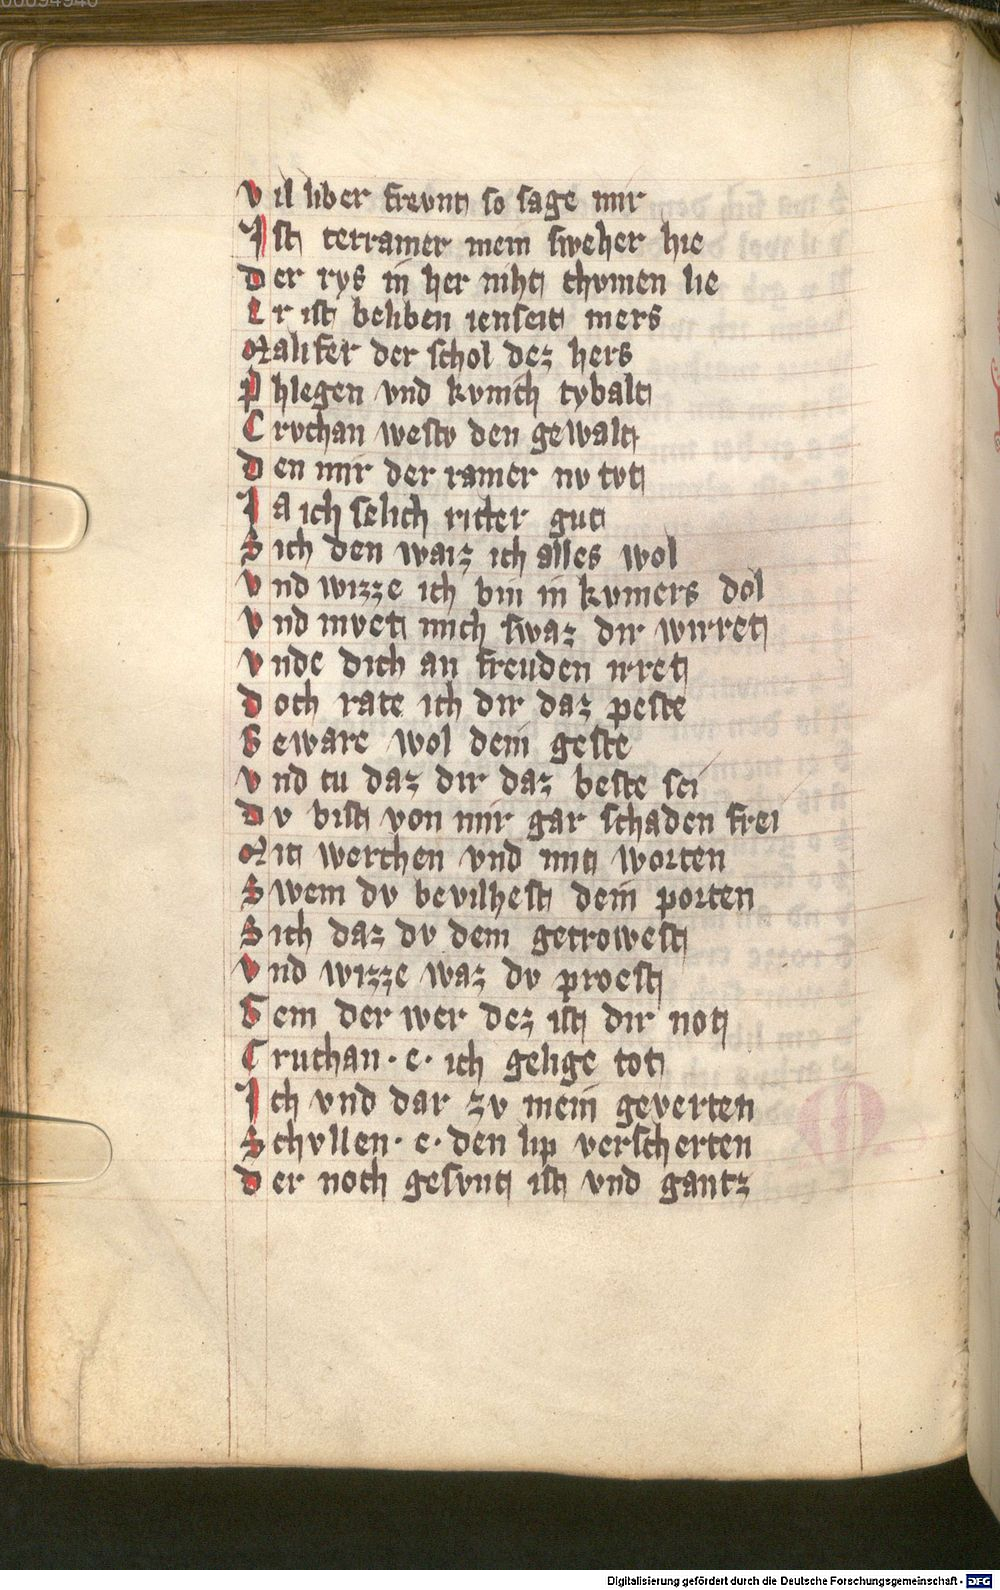 00094940
Vil liber frevnt so sage mir
Ist terramer mein sweher hie
Der rys in her niht chvmen lie
Er ist beliben ienseit mers
Malifer der schol dez hers
Phlegen vnd kvnich tybalt
Crvchan westv den gewalt
Den mir der ramer nv tvt
Ja ich selich ritter gut
Sich den waiz ich alles wol
Vnd wizze ich bin in kvmers dol
Vnd mvet mich swaz dir wirret
Vnde dich an freuden irret
Doch rate ich dir daz peste
Beware wol dein geste
Vnd tu daz dir daz beste sei
Dv bist von mir gar schaden frei
Mit werchen vnd mit worten
Swem dv bevilhest dein porten
Sich daz dv dem getrowest
Vnd wizze waz dv proest
Gein der wer dez ist dir not
Cruchan · e · ich gelige tot
Ich vnd dar zv mein geverten
Schvllen · e · den lip verscherten
Der noch gesvnt ist vnd gantz
Digitalisierung gefördert durch die Deutsche Forschungsgemeinschaft - DFG